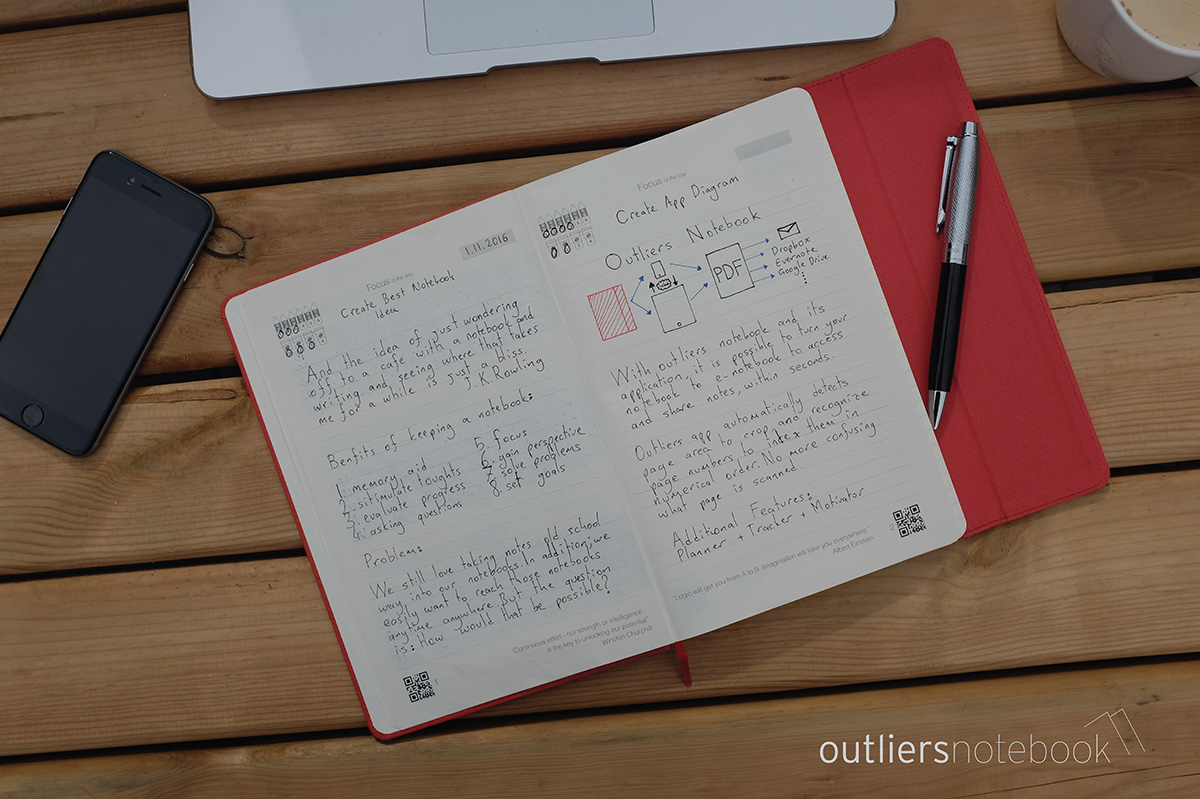 1.11.2016
Focus of the day
Create Best Notebook
idea
And the idea of just wondering
off to a cafe with a notebook and
writing and seeing where that takes
me for a while is just a bliss.
J.K.Rowling
Benfits of keeping a notebook:
1. memory aid
2. sitimulate toughts
3. evaluate progress
4. asking questions
5. focus
6. gain perspective
7. solve problems
8. set goals
Problem:
We still love taking notes old school
way into our notebooks. In addition; we
easily want to reach those notebooks
anytime anywhere. But the question
is: How would that be possible?
"Continuous effort - not strength or intelligence -
is the key to unlocking our potential"
Winston Churchill
1
Focus of the day
Create App Diagram
Outliers Notebook
PDF
Dropbox
Evernote
Google Drive
With outliers notebook and its
application, it is possible to turn your
notebook to e-notebook to access
and share notes, within seconds.
Outliers app automatically detects
page area to crop, and recognize
page numbers to index them in
numerical order. No more confusing
what page is scanned.
Additional Features:
Planner + Tracker + Motivator
"Logic will get you from A to B. Imagination will take you everywhere."
Albert Einstein
2
outliersnotebook